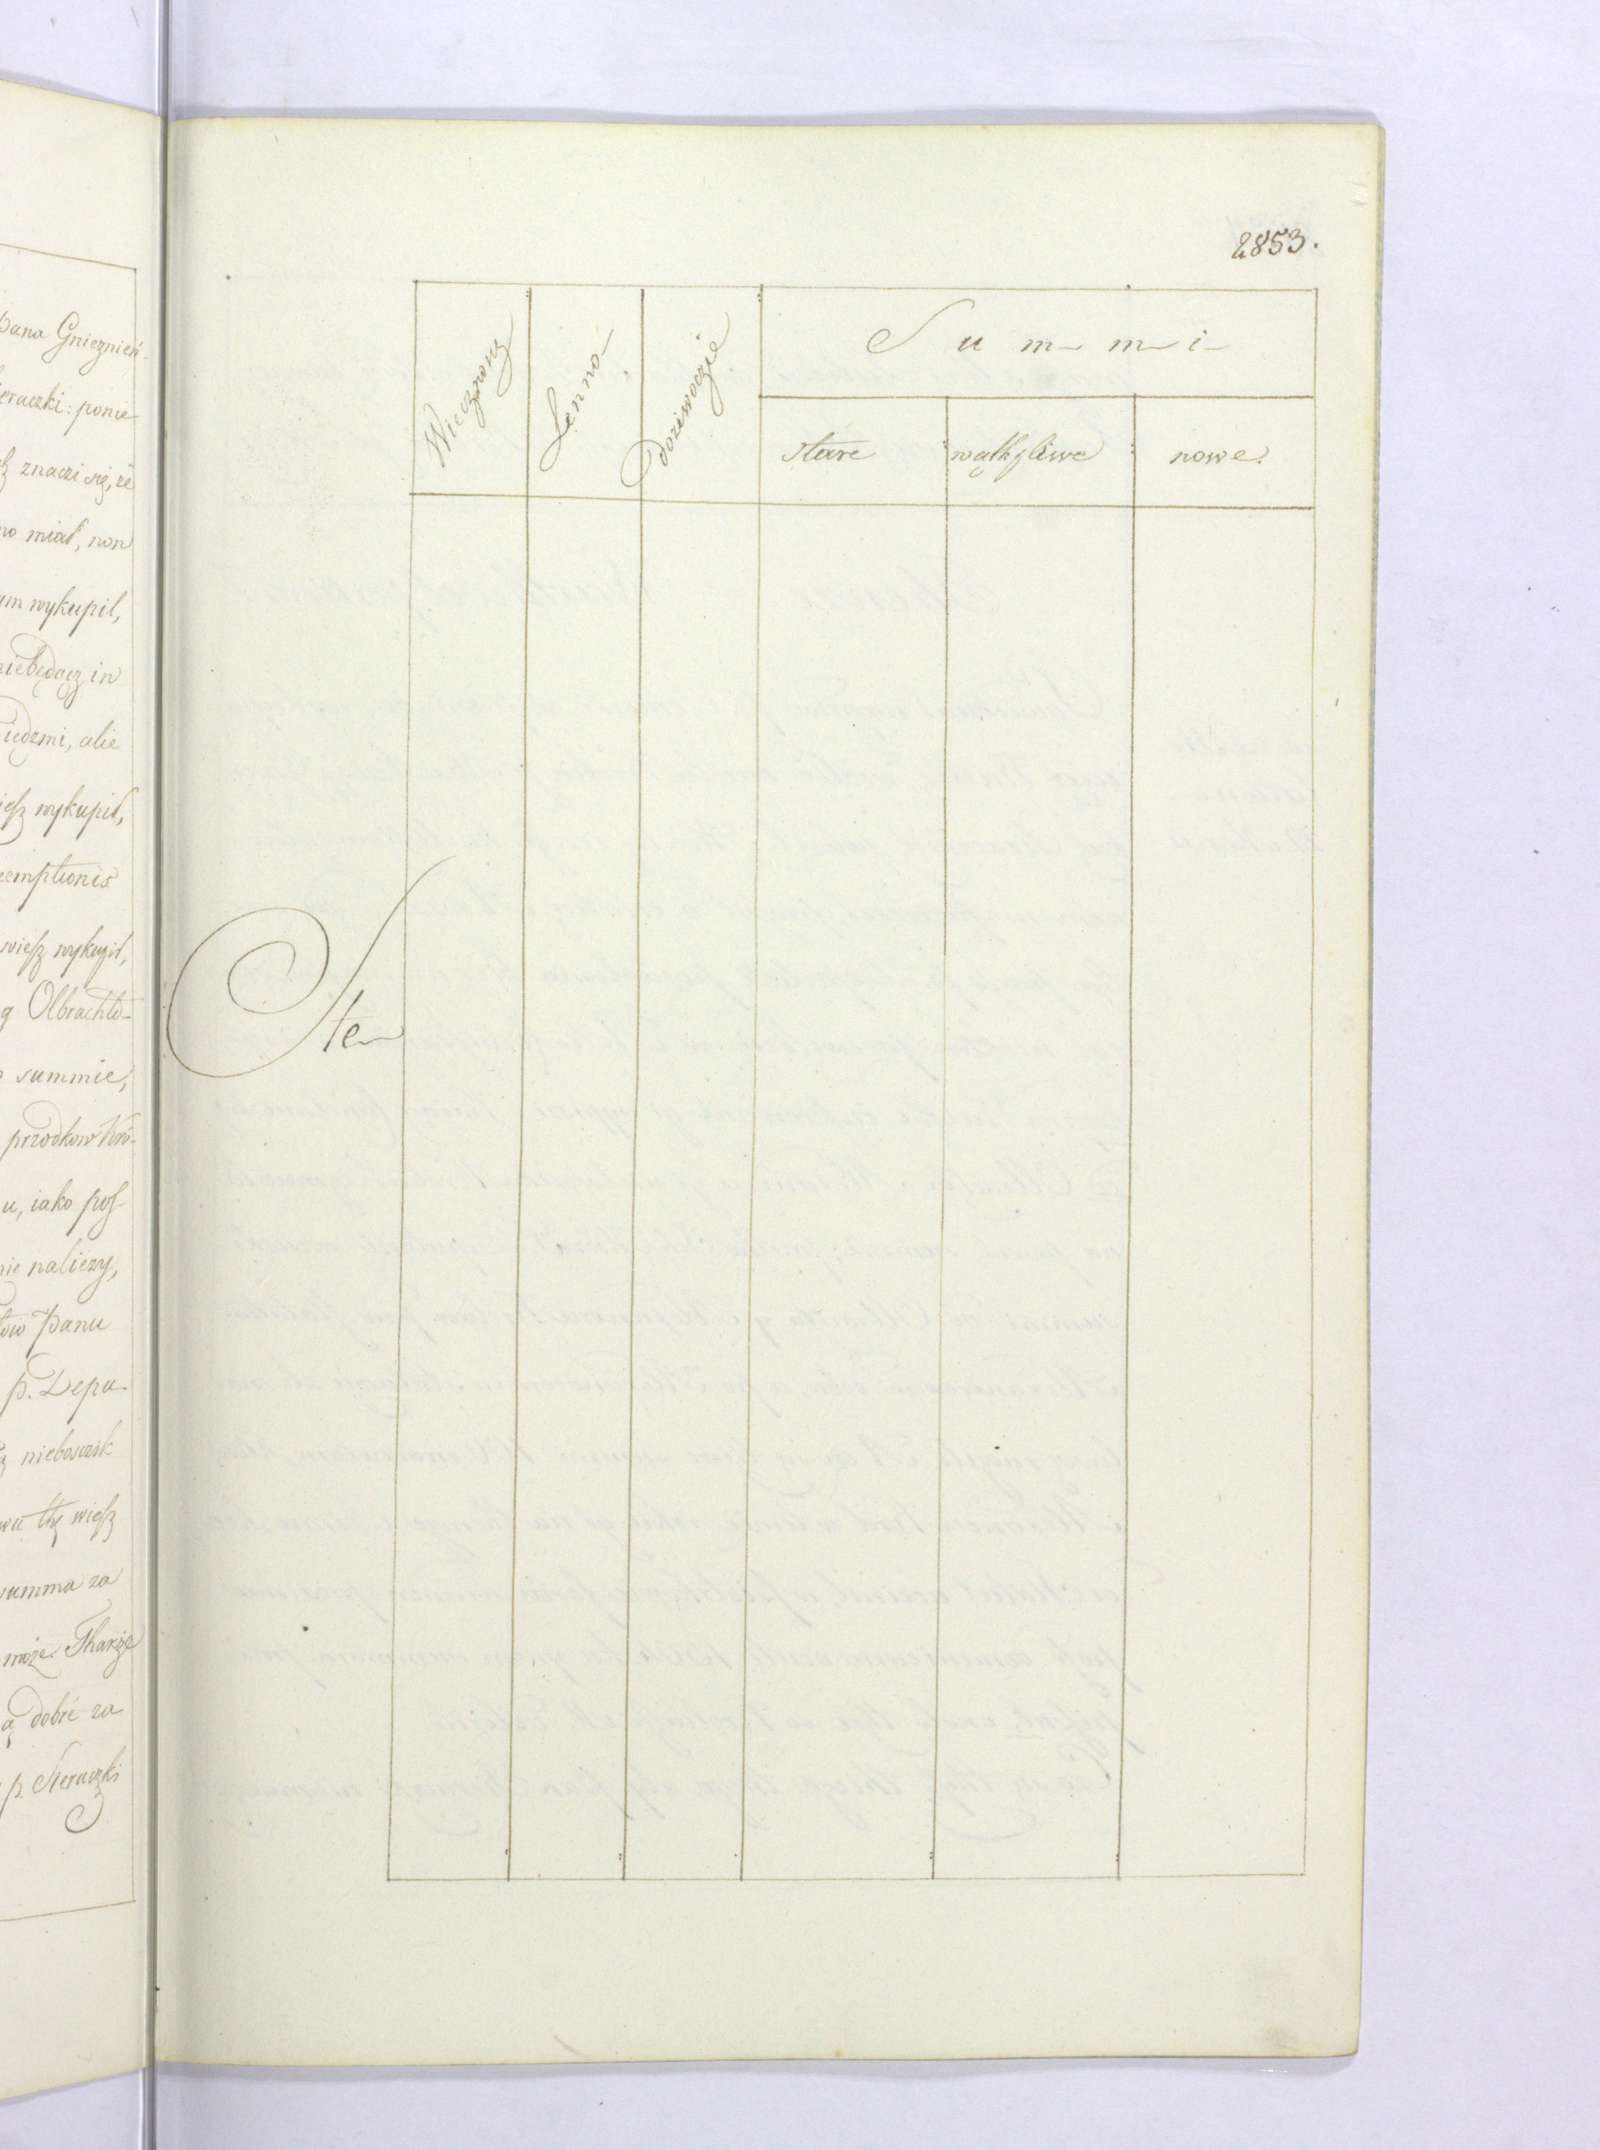 pana Gnieznień-
eraczki: ponie
znaczi się, że
no miał, non
um wykupil,
niebędącz in
iedzmi, alie
iesz wykupił,
emptionis
wiesz wykupił,
Olbrachto-
summie,
przodkow Kró-
u, iako pos-
nie naliezy,
tow Panu
p. Depu-
nieboszik
wu thę wiesz
summa za
może. Tharze
dobré za
p. Sieraczki
2853.
Wiecznoną Lenno- Doziwoczie Summi
stare wąthpliwe nowe.
Ste